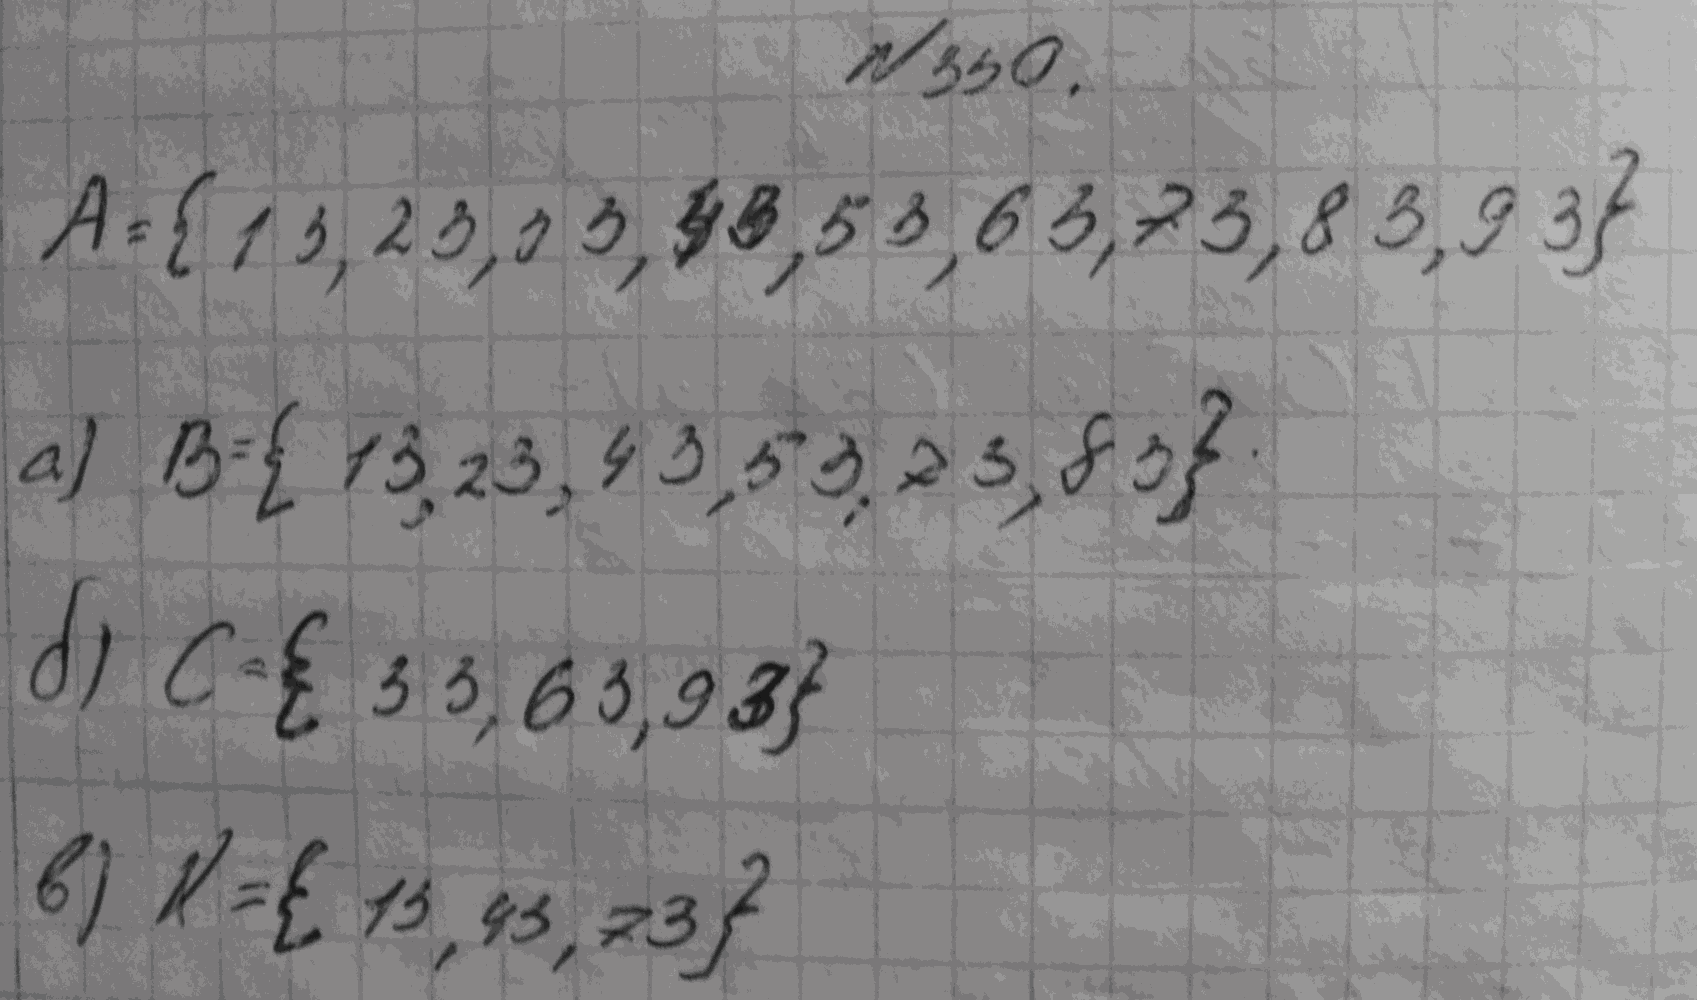 № 330.
A={13, 23, 33, 43, 53, 63, 73, 83, 93}
а) B={13, 23, 43, 53, 73, 83}.
б) C={33, 63, 93}
в) K={13, 43, 73}